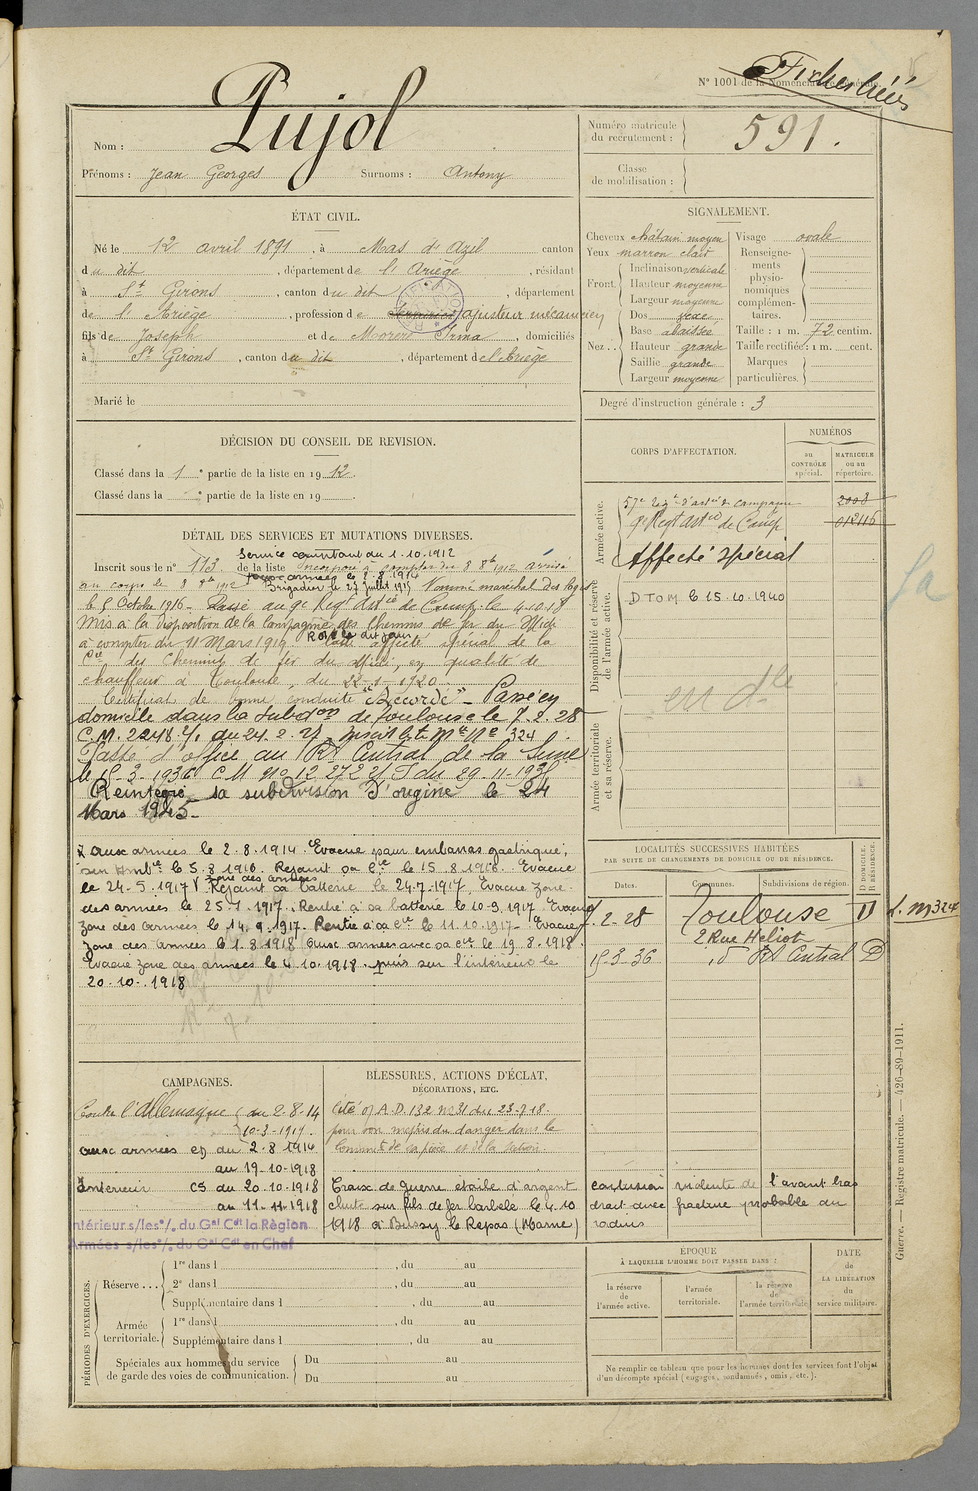 N° 1001 de la Nomenclature générale.
Fiches liées
Nom : Pujol
Prénoms : Jean Georges Surnoms : Antony
Numéro matricule du recrutement : 591.
Classe de mobilisation :
ÉTAT CIVIL.
Né le 12 avril 1891, à Mas d'Azil canton
du dit, département de l'Ariège, résidant
à St Girons, canton du dit, département
de l'Ariège, profession de ajusteur mécanicien
fils de Joseph et de Irma, domiciliés
à St Girons, canton du dit, département de l'Ariège
Marié le
SIGNALEMENT.
Cheveux châtain moyen
Yeux marron clair
Front. Inclinaison verticale
Hauteur moyenne
Largeur moyenne
Nez.. Dos vexe
Base abaissée
Hauteur grande
Saillie grande
Largeur moyenne
Visage ovale
Renseignements physionomiques complémentaires.
Taille : 1 m. 72 centim.
Taille rectifiée : 1 m. cent.
Marques particulières.
Degré d'instruction générale : 3
DÉCISION DU CONSEIL DE REVISION.
Classé dans la 1e partie de la liste en 1912.
Classé dans la e partie de la liste en 19 .
CORPS D'AFFECTATION.
NUMÉROS
au CONTRÔLE spécial.
MATRICULE ou au répertoire.
Armée active.
57e Regt d'artie de campagne 2008
9e Regt Artie de Camp 012115
Affecté spécial
Disponibilité et réserve de l'armée active.
DTOM le 15.10.1940
en dle
Armée territoriale et sa réserve.
DÉTAIL DES SERVICES ET MUTATIONS DIVERSES.
Service comptant du 1.10.1912
Inscrit sous le n° 113 de la liste Incorporé à compter du 8 8bre 1912 arrivé
au corps le 8 8bre 1912
Brigadier le 27 juillet 1915 Nommé maréchal des logis
le 5 Octobre 1916 - Passé au 9e Regt Artie de Camp. le 4.10.18
Mis à la disposition de la Compagnie des Chemins de fer du Midi
à compter du 11 Mars 1919. Rayé le dit jour
Classé affecté spécial de la
Cie des Chemins de fer du Midi, en qualité de
chauffeur à Toulouse, du 22-1-1920.
Certificat de bonne conduite "Accordé" - Passé en
domicile dans la Subdon de Toulouse le 7.2.28
Passé d'office au Rt Central de la Seine
le 15-3-1936 C M No 12 272
Réintégré sa subdivision d'origine le 24
Mars 1945-
aux armées le 2.8.1914. Evacué pour embarras gastrique,
le 5.8.1916. Rejoint sa Bie le 15.8.1916. Evacué
zone des armées
le 24-5-1917. Rejoint sa batterie le 24-7-1917, Evacué zone
des armées le 25-7-1917. Rentré à sa batterie le 10-9.1917 Evacué
zone des armées le 14.9.1917- Rentré à sa Bie le 11.10.1917- Evacué
zone des armées le 1.8.1918 aux armées avec sa Bie le 19.8.1918.
Evacué zone des armées le 4.10.1918. puis sur l'intérieur le
20.10.1918
LOCALITÉS SUCCESSIVES HABITÉES
PAR SUITE DE CHANGEMENTS DE DOMICILE OU DE RÉSIDENCE.
Dates. Communes. Subdivisions de région. D DOMICILE. R RÉSIDENCE.
7.2.28 Toulouse D
2 Rue Heliot
15.3.36 Rt Central D
CAMPAGNES.
Contre l'Allemagne du 2-8-14
10-3-1919.
aux armées du 2 8 1914
au 19-10-1918
Intérieur CS du 20-10-1918
au 11-11-1918
Intérieur s/les°/. du Gal Cdt la Région
Armées s/les°/. du Gal Cdt en Chef
BLESSURES, ACTIONS D'ÉCLAT, DÉCORATIONS, ETC.
Cité O/ A.D. 132 N 31 du 23-7-18.
pour son mépris du danger dans le
Croix de guerre étoile d'argent
chute sur fils de fer barbelé le 4.10
1918 à Bussy le Repos (Marne)
contusion violente de l'avant bras
droit avec fracture probable du
radius
PÉRIODES D'EXERCICES.
Réserve...
1re dans l , du au
2e dans l , du au
Supplémentaire dans l , du au
Armée territoriale.
1re dans l , du au
Supplémentaire dans l , du au
Spéciales aux hommes du service de garde des voies de communication.
Du au
Du au
ÉPOQUE
À LAQUELLE L'HOMME DOIT PASSER DANS :
la réserve de l'armée active.
l'armée territoriale.
la réserve de l'armée territoriale
DATE de LA LIBÉRATION du service militaire.
Ne remplir ce tableau que pour les hommes dont les services font l'objet
d'un décompte spécial (engagés, condamnés, omis, etc.).
Guerre. — Registre matricule. — 426-89-1911.